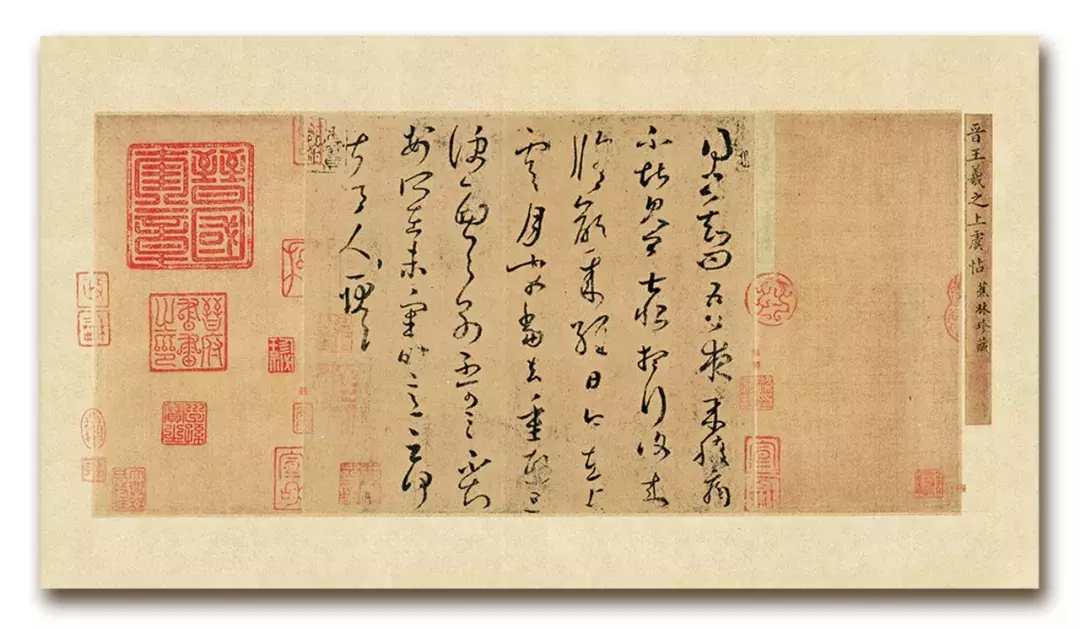 晉王羲之上虞帖 蕉林珍藏
得書知問吾夜來腹痛
不堪見卿甚恨想行復來
脩齡來經日今在上
虞月末當去重熙旦
便西與別不可言不知
安所在未審時意云何
甚令人耿耿
晉國奎章
晉府書畫之印
政龢